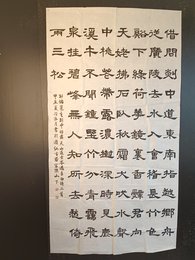 借問剡中道東南指越鄉舟
從廣陵去水入會稽長竹色
谿下綠荷花鏡裏香辭君向
天姥拂石臥秋霜犬吠水聲
中桃花帶露濃樹深時見鹿
溪午不聞鐘野竹分青靄飛
泉挂碧峰無人知所去愁倚
兩三松